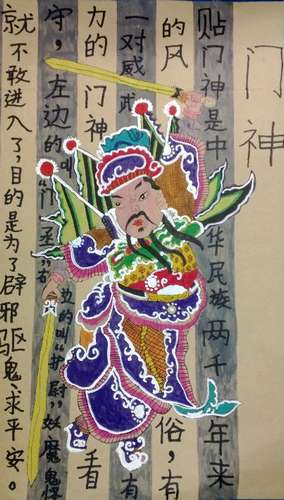 门神
贴门神是中华民族两千年来
的风俗,有
一对威武有
力的门神看
守,左边的叫“门丞”右边的叫“护尉”,妖魔鬼怪
就不敢进入了,目的是为了辟邪驱鬼求平安。